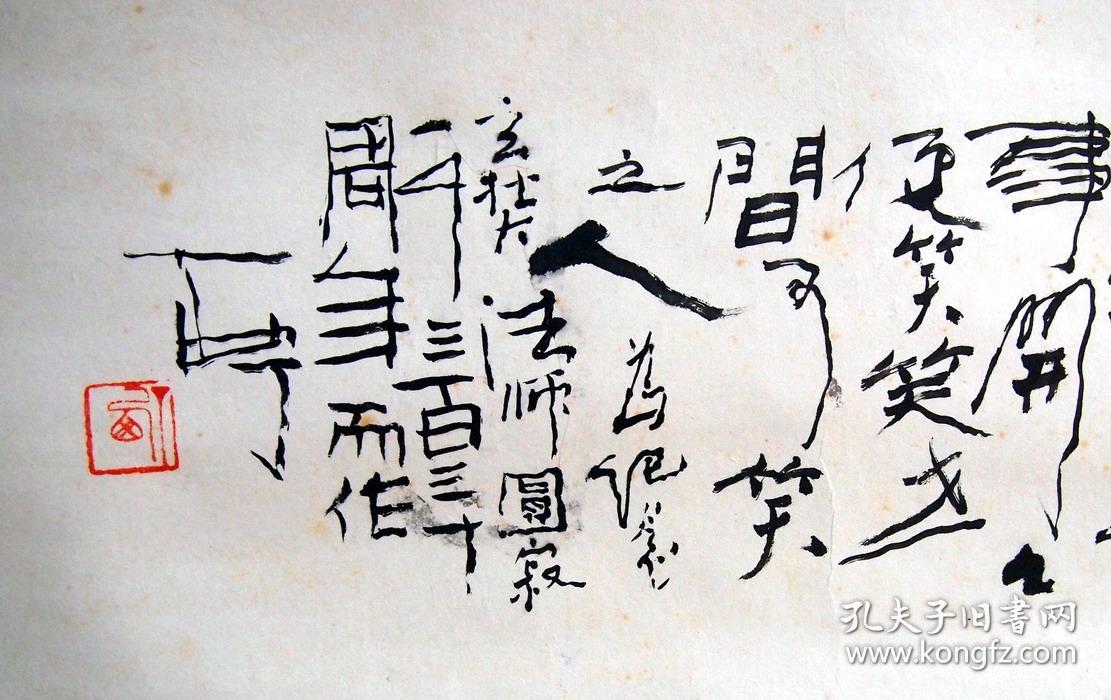 事開口
便笑笑世
間可笑
之人 為紀念
玄奘法師圓寂
一千三百三十
周年而作
孔夫子旧书网
www.kongfz.com